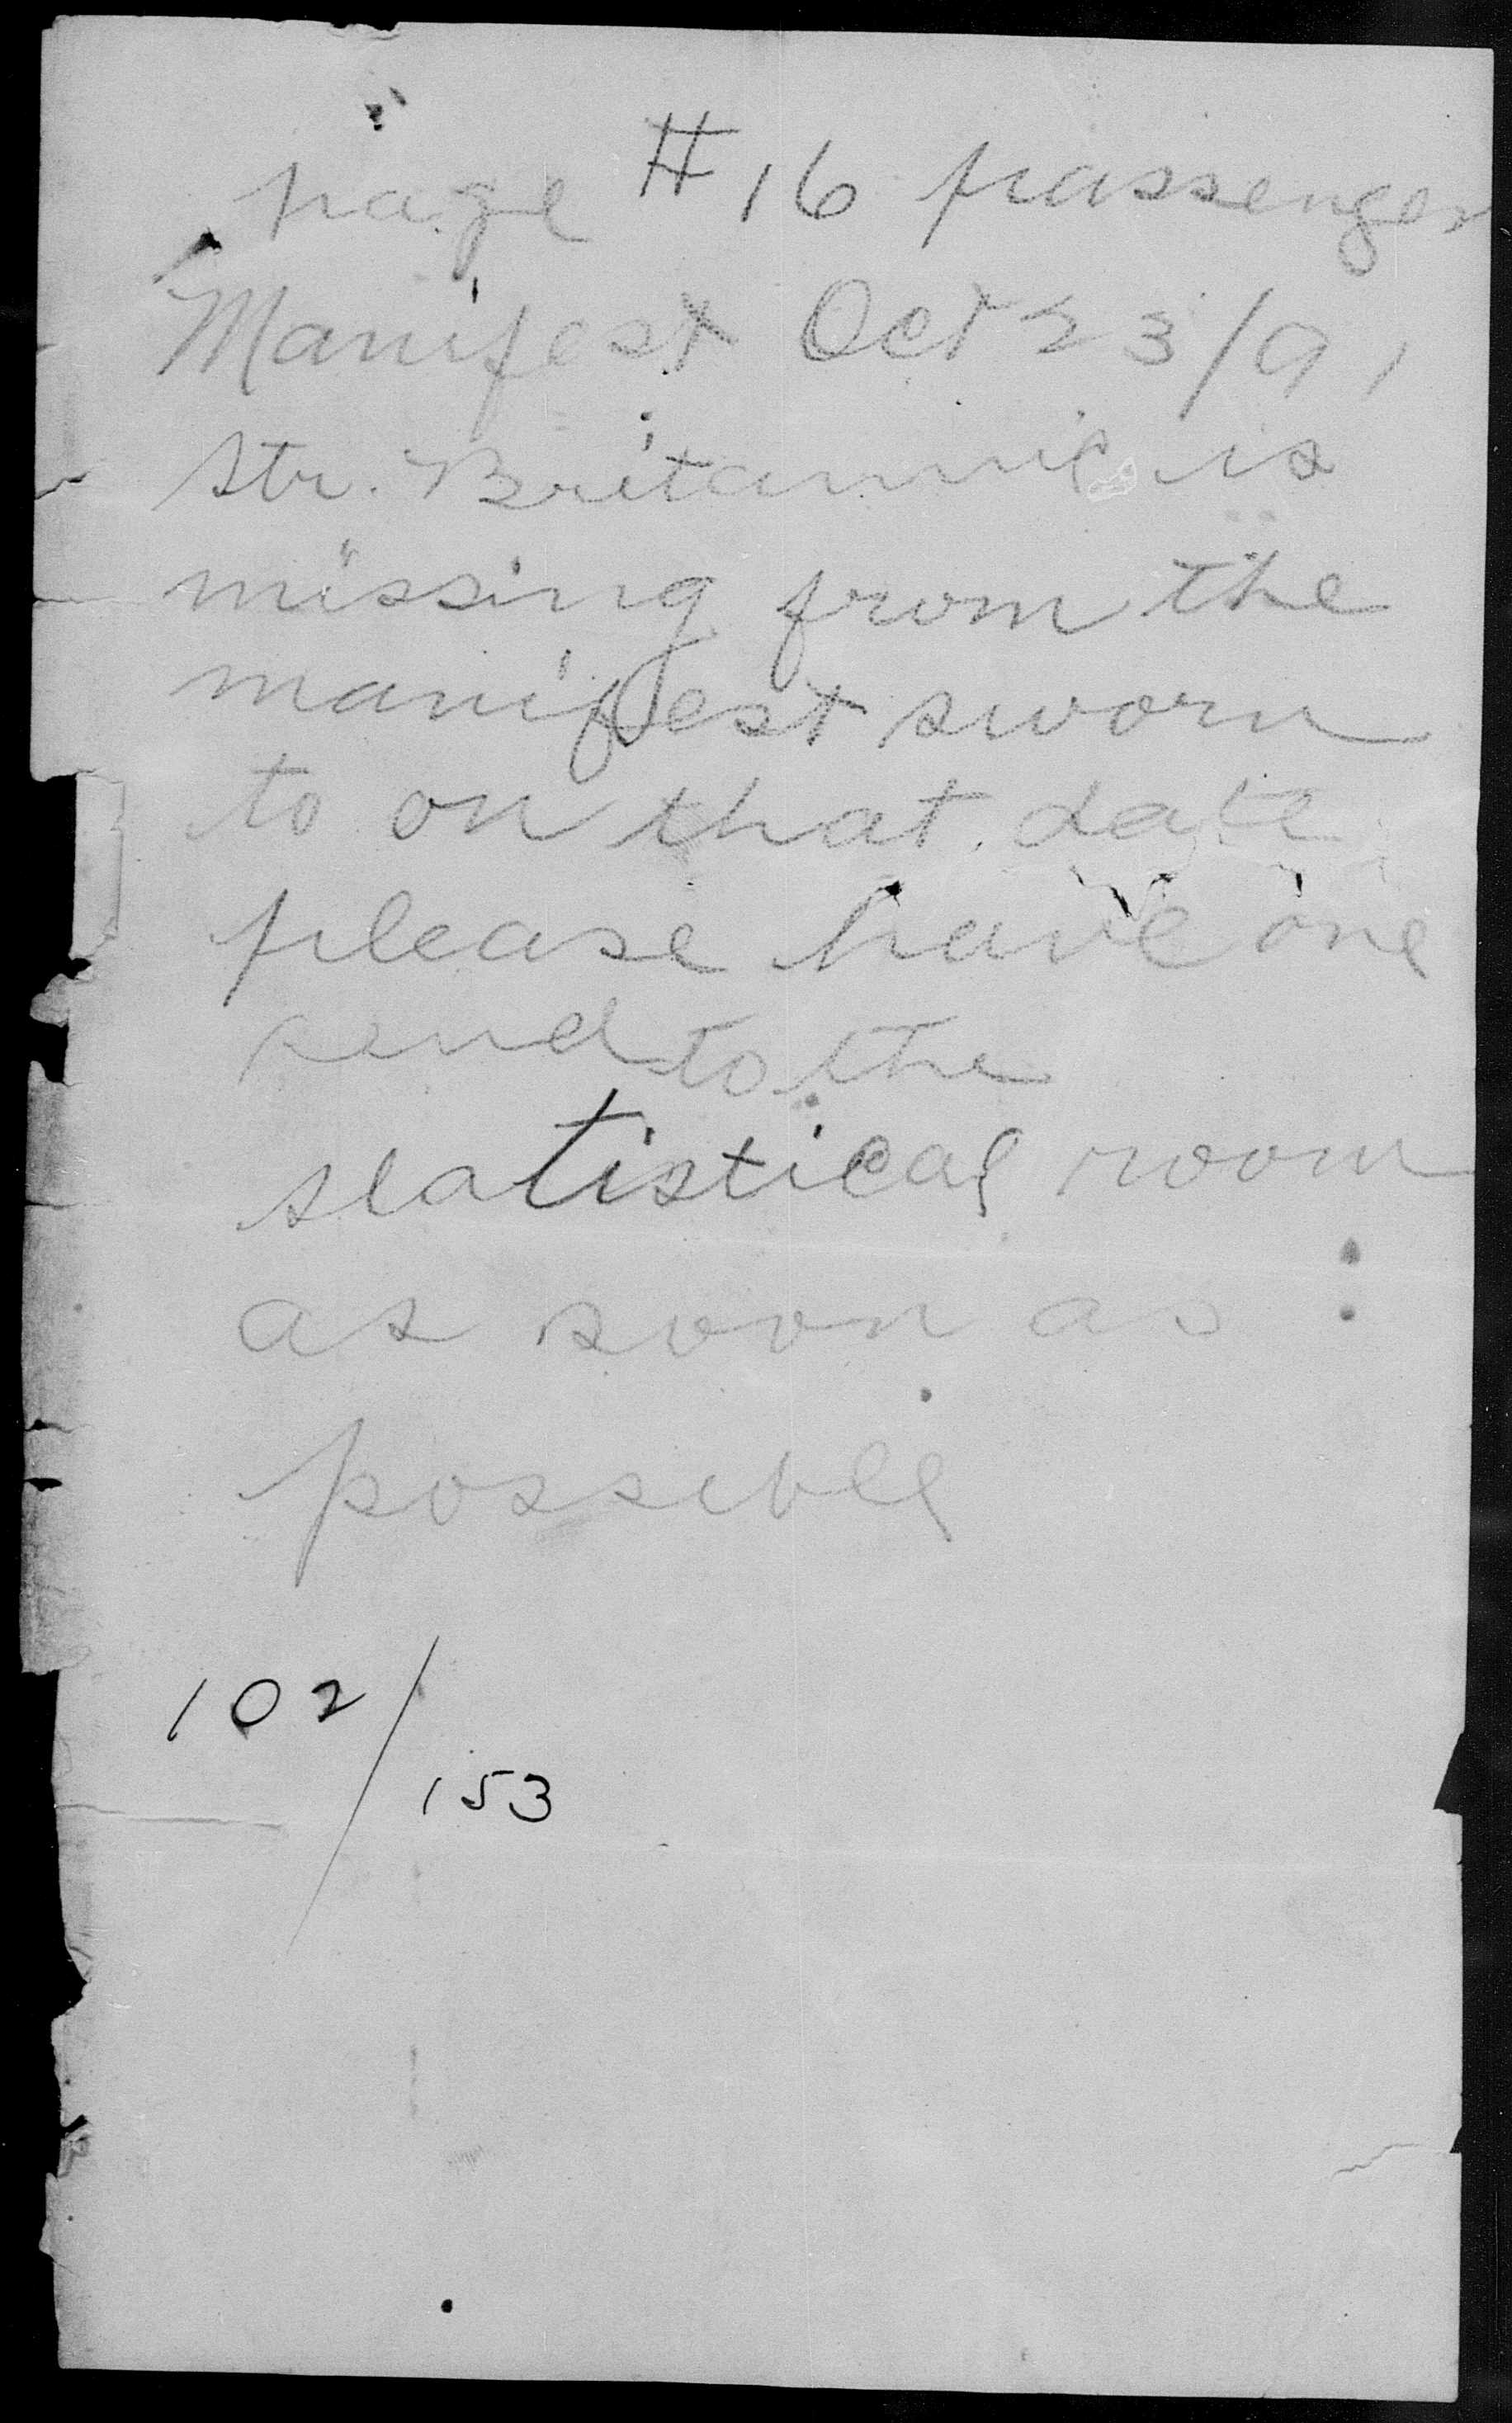 page # 16 passenger
Manifest Oct 23/91
Str. Britannic is
missing from the
manifest sworn
to on that date
please have one
send to the
statistical room
as soon as
possible
102/153